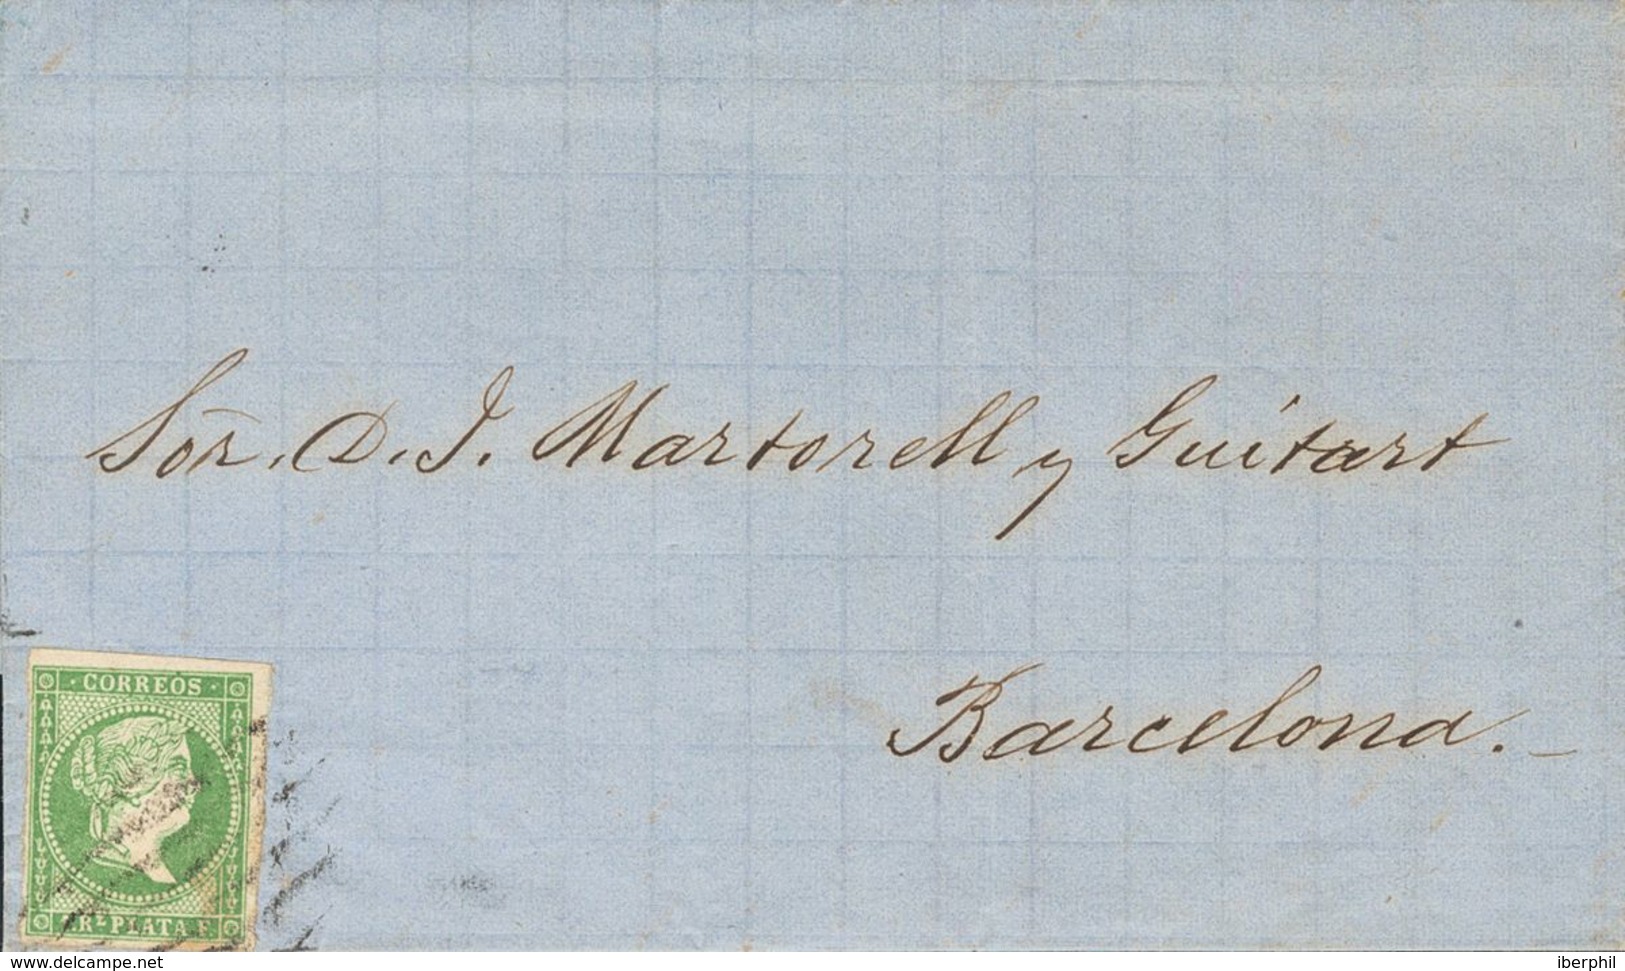 Sõr. D. J. Martorell y Guitart
Barcelona.
CORREOS
1Rl PLATA F.
www.delcampe.net
iberphil